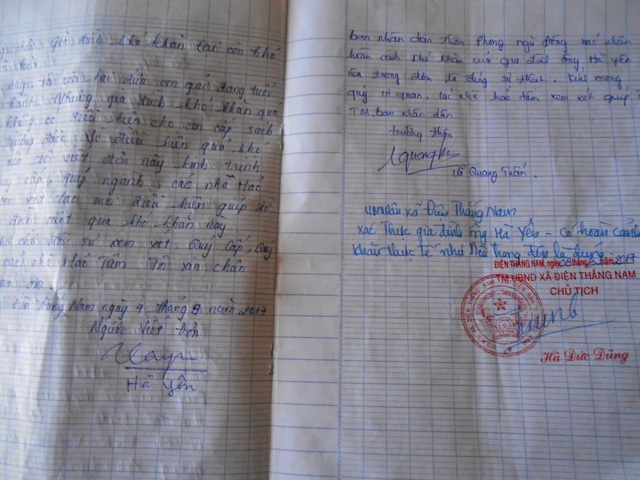 gia đình khó khăn lại còn khó
tôi còn hai đứa con gái đang tuổi
Nhưng gia đình khó khăn quá
không có điều kiện cho con cắp sách
trường được. Vì điều kiện quá khó
tôi viết đơn này kính trình
quý cấp, quý ngành, các nhà Hảo
điều kiện giúp đỡ
vượt qua khó khăn này
sự xem xét. Quý Cấp, Quý
các nhà Hảo Tâm. Tôi xin chân
Nam ngày 7 tháng 8 năm 2017
Người Viết đơn
Hà Yên
Ban nhân dân thôn Phong ngũ Đông xác nhận
hoàn cảnh khó khăn của gia đình ông Hà Yên
trong đơn là đúng sự thật. Kính mong
quý cơ quan, các nhà hảo tâm xem xét giúp
TM. ban nhân dân
trưởng thôn
Lê Quang Tuấn.
UBND xã Điện Thắng Nam
xác Thực gia đình ông Hà Yên - Có hoàn cảnh
khăn thực tế như Nêu trong đơn là đúng
ĐIỆN THẮNG NAM, ngày tháng năm 2017
TM UBND XÃ ĐIỆN THẮNG NAM
CHỦ TỊCH
Hà Đức Dũng